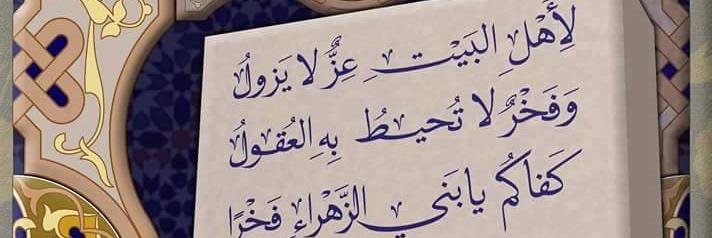 لِأَهْلِ البَيْتِ عِزٌّ لا يَزولُ
وَفَخْرٌ لا تُحيطُ بِهِ العُقولُ
كَفاكُم يا بَني الزَّهْراءِ فَخْرًا